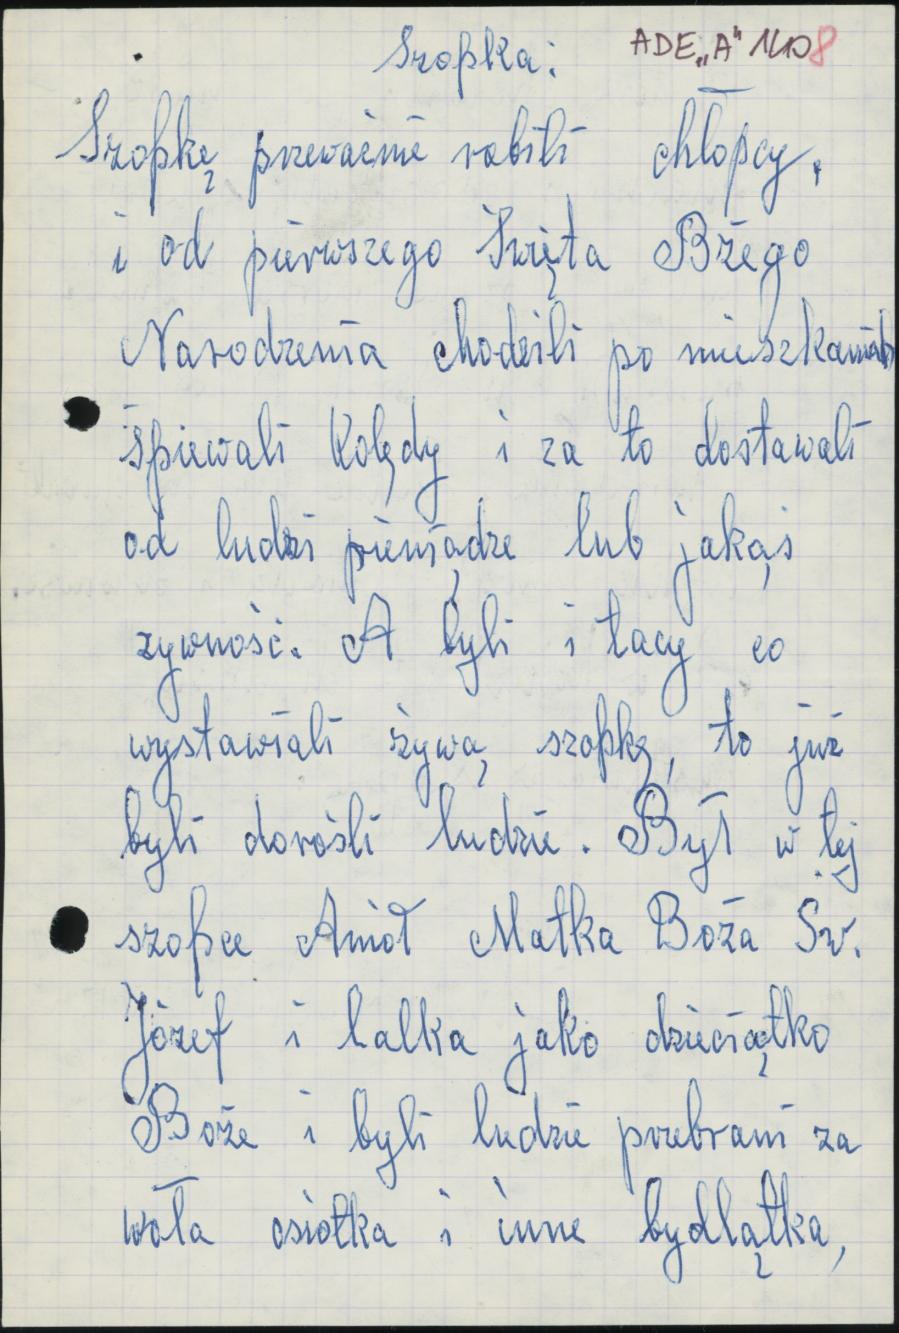 Szopka:
ADE „A" 1/108
Szopkę przeważnie robili chłopcy,
i od pierwszego Święta Bżego
Narodzenia chodzili po mieszkaniach
śpiewali kolędy i za to dostawali
od ludzi pieniądze lub jakąś
żywność. A byli i tacy co
wystawiali żywą szopkę, to już
byli dorośli ludzie. Był w tej
szopce Anioł Matka Boża Św.
Józef i lalka jako dzieciątko
Boże i byli ludzie przebrani za
woła osiołka i inne bydlątka,